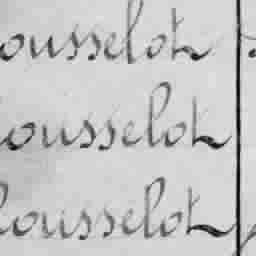 ousselot
ousselot
ousselot